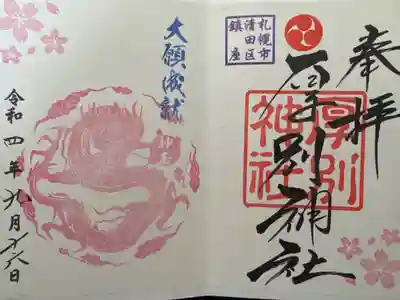 奉拝
厚別神社
厚別
神社
札幌市
清田区
鎮座
大願成就
令和四年九月十六日